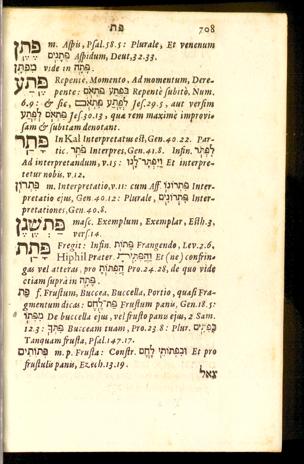 פת 708
פֶּתֶן m. Aspis, Psal.58.5: Plurale, Et venenum
פְּתָנִים Aspidum, Deut.32.33.
מִפְתָּן vide in פָּתָה
פֶּתַע Repente, Momento, Ad momentum, Dere-
pente: בְּפֶתַע פִּתְאֹם Repentè subitò. Num.
6.9: & sic, לְפֶתַע פִּתְאֹם Jes.29.5, aut versim
פִּתְאֹם לְפֶתַע Jes.30.13, qua rem maximè improvi-
sam & subitam denotant.
פָּתַר In Kal Interpretatus est, Gen.40.22. Par-
tic. פֹּתֵר Interpres, Gen.41.8. Infin. לִפְתֹּר
Ad interpretandum, v.15: וַיִּפְתָּר־לָנוּ Et interpre-
tetur nobis, v.12.
פִּתְרוֹן m. Interpretatio, v.11: cum Aff. פִּתְרוֹנוֹ Inter-
pretatio ejus, Gen.40.12: Plurale, פִּתְרֹנִים Inter-
pretationes, Gen.40.8.
פַּתְשֶׁגֶן masc. Exemplum, Exemplar, Esth.3.
vers.14.
פָּתַת Fregit: Infin. פָּתוֹת Frangendo, Lev.2.6,
Hiphil Præter. וַהֲפִתִּיתָ Et (ne) confrin-
gas vel alteras, pro וַהֲפִתּוֹתָ Pro.24.28, de quo vide
etiam suprà in פָּתָה.
פַּת f. Frustum, Buccea, Buccella, Portio, quasi Fra-
gmentum dicas: פַּת־לֶחֶם Frustum panis, Gen.18.5:
מִפִּתּוֹ De buccella ejus, vel frusto panu ejus, 2 Sam.
12.3: פִּתְּךָ Bucceam tuam, Pro.23.8: Plur. כְפִתִּים
Tanquam frusta, Psal.147.17.
פְּתוֹתִים m.p. Frusta: Constr. וּבִפְתוֹתֵי לֶחֶם Et pro
frustulis panis, Ezech.13.19.
צאל